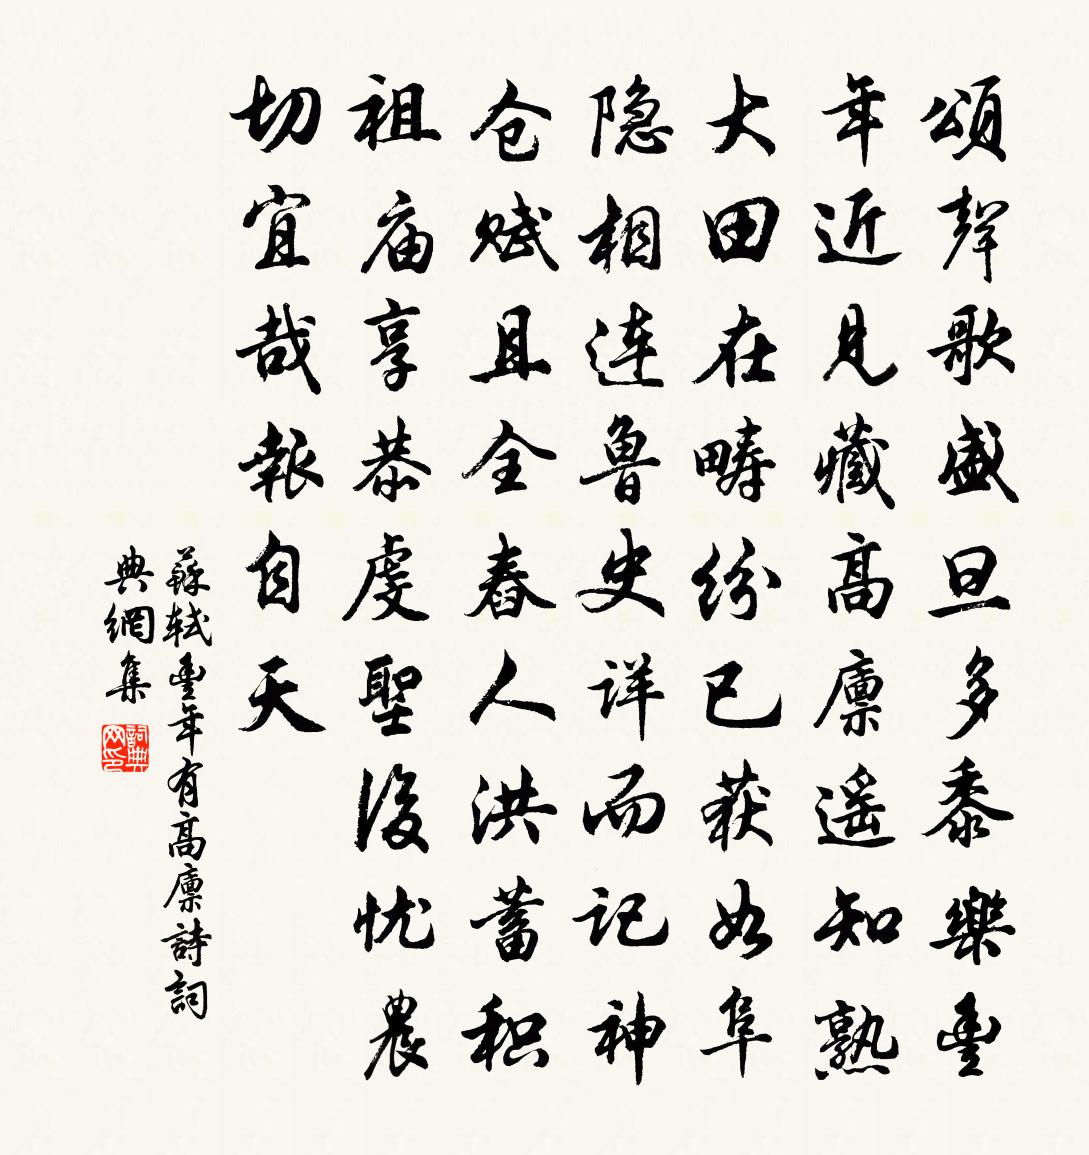 頌聲歌盛旦多黍樂豐
年近見藏高廩遥知熟
大田在疇紛已获如阜
隐相連魯史详而记神
仓赋且全舂人洪蓄积
祖庙享恭虔聖後忧農
切宜哉報自天
蘇軾豐年有高廩詩詞
典網集
詞典网印